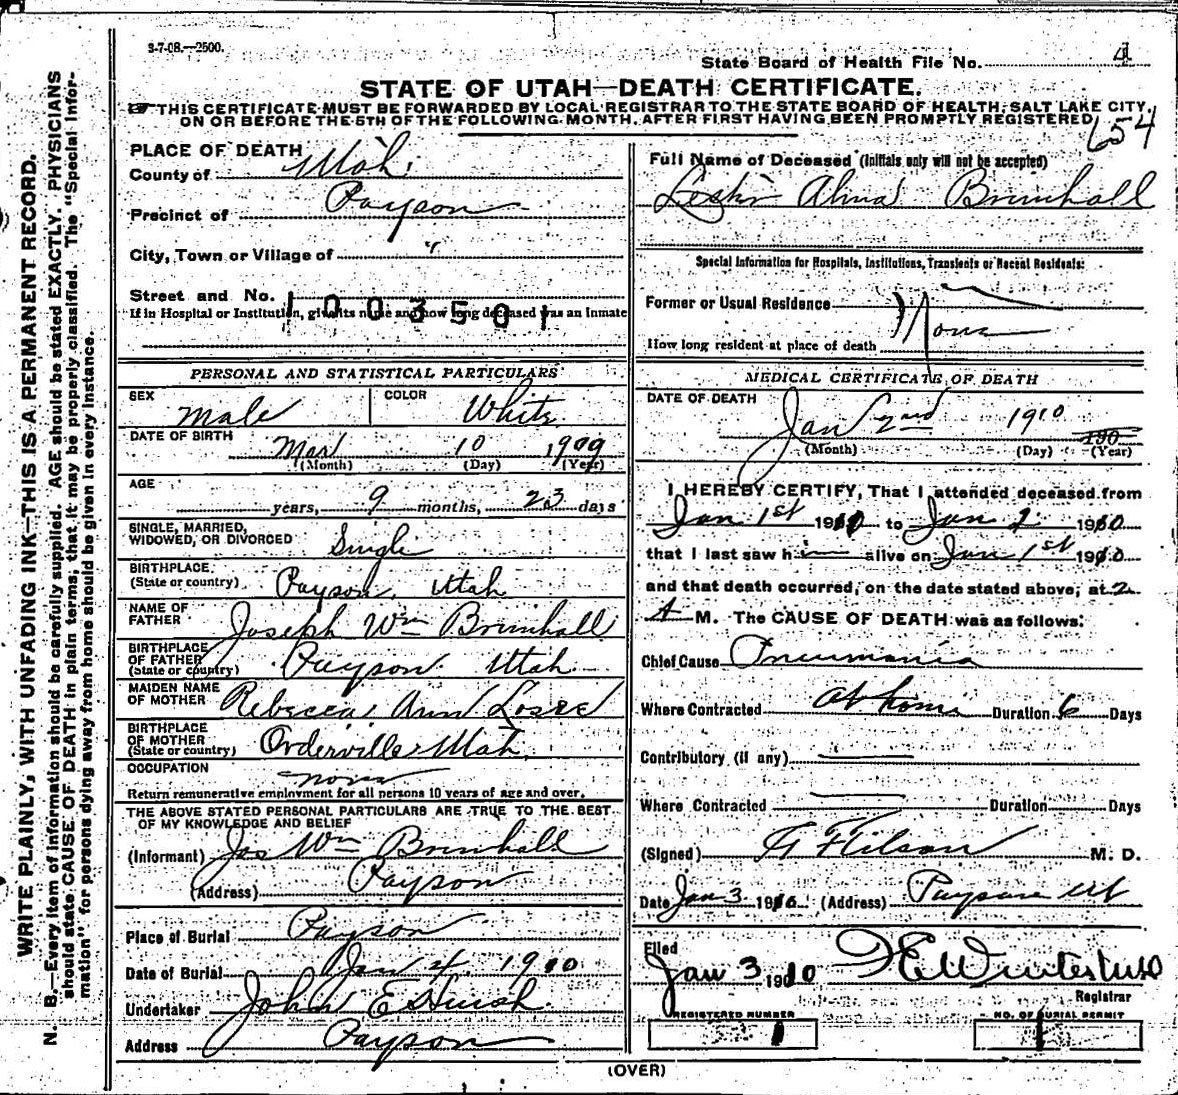 3-7-08.—2500.
State Board of Health File No. 4
STATE OF UTAH—DEATH CERTIFICATE.
THIS CERTIFICATE MUST BE FORWARDED BY LOCAL REGISTRAR TO THE STATE BOARD OF HEALTH, SALT LAKE CITY,
ON OR BEFORE THE 5TH OF THE FOLLOWING MONTH, AFTER FIRST HAVING BEEN PROMPTLY REGISTERED
654
WRITE PLAINLY, WITH UNFADING INK—THIS IS A PERMANENT RECORD.
N. B.—Every item of information should be carefully supplied. AGE should be stated EXACTLY. PHYSICIANS
should state CAUSE OF DEATH in plain terms, that it may be properly classified. The "Special Infor-
mation" for persons dying away from home should be given in every instance.
PLACE OF DEATH
County of Utah
Precinct of Payson
City, Town or Village of "
Street and No.
1003501
If in Hospital or Institution, give its name and how long deceased was an Inmate
PERSONAL AND STATISTICAL PARTICULARS
SEX Male COLOR White
DATE OF BIRTH Mar 10 1909
(Month) (Day) (Year)
AGE years, 9 months, 23 days
SINGLE, MARRIED,
WIDOWED, OR DIVORCED Single
BIRTHPLACE
(State or country) Payson, Utah
NAME OF
FATHER Joseph Wm Brimhall
BIRTHPLACE
OF FATHER
(State or country) Payson Utah
MAIDEN NAME
OF MOTHER Rebecca Ann Losee
BIRTHPLACE
OF MOTHER
(State or country) Orderville Utah
OCCUPATION none
Return remunerative employment for all persons 10 years of age and over.
THE ABOVE STATED PERSONAL PARTICULARS ARE TRUE TO THE BEST
OF MY KNOWLEDGE AND BELIEF
(Informant) Jos Wm Brimhall
(Address) Payson
Place of Burial Payson
Date of Burial Jan 4 1910
Undertaker John E
Address Payson
Full Name of Deceased (Initials only will not be accepted)
Alma Brimhall
Special Information for Hospitals, Institutions, Transients or Recent Residents:
Former or Usual Residence
How long resident at place of death
MEDICAL CERTIFICATE OF DEATH
DATE OF DEATH
Jan 2nd 1910 190
(Month) (Day) (Year)
I HEREBY CERTIFY, That I attended deceased from
Jan 1st 1910 to Jan 2 1910
that I last saw him alive on Jan 1st 1910
and that death occurred, on the date stated above, at 2
A M. The CAUSE OF DEATH was as follows:
Chief Cause Pneumonia
Where Contracted at home Duration 6 Days
Contributory (if any)
Where Contracted Duration Days
(Signed) M. D.
Date Jan 3 1910 (Address) Payson Ut
Filed
Jan 3 1910
Registrar
REGISTERED NUMBER
1
NO. OF BURIAL PERMIT
1
(OVER)